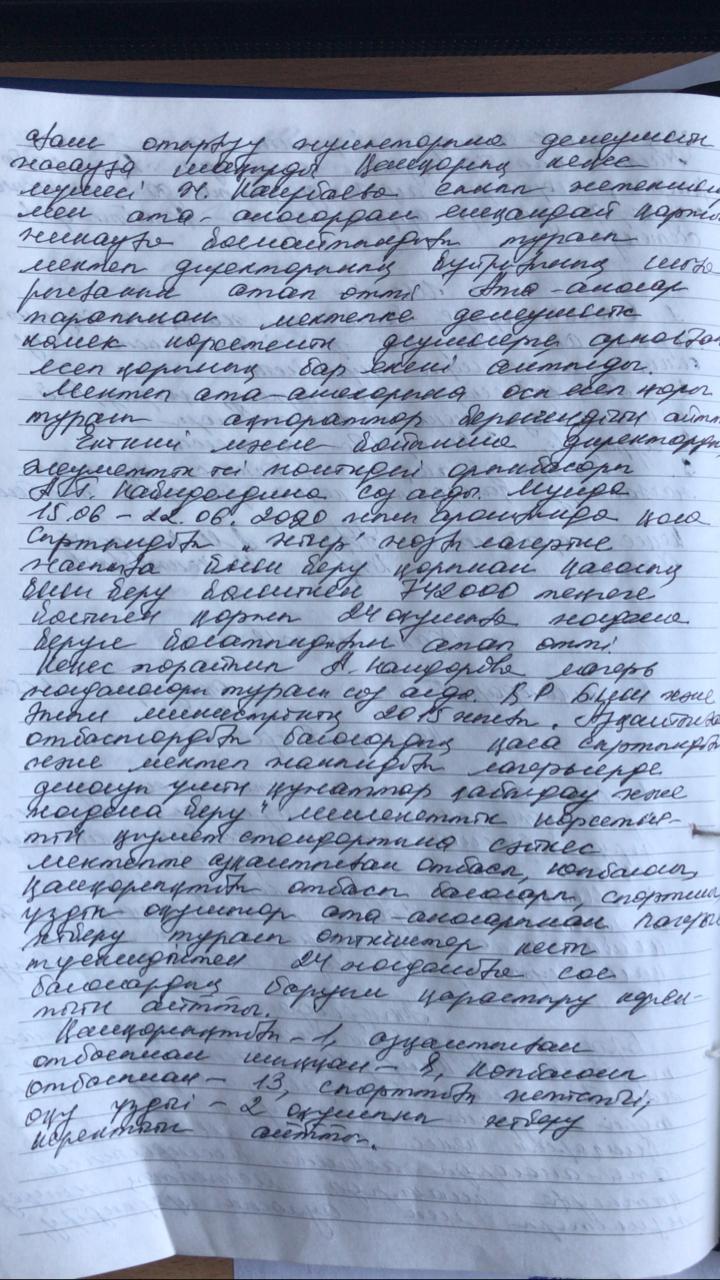 отырғызу жұмыстарына демеушілік
жасауға шақырды Қамқорлық кеңес
мүшесі Ж. Каирбаева
мен ата-аналардан ешқандай қаржы
жинауға болмайтындығы туралы
мектеп директорының бұйрығының
атап өтті. Ата-аналар
тарапынан мектепке демеушілік
көмек көрсетемін деушілерге арналған
есеп қорының бар екені айтылды.
Мектеп ата-аналарына осы есеп қоры
туралы ақпараттар берілгендігін айтты
Екінші мәселе бойынша директордың
әлеуметтік ісі жөніндегі орынбасары
А.П. Кабиделдина сөз алды. Мұнда
15.06 – 22.06. 2020 жыл аралығында қала
сыртындағы жазғы лагеріне
жалпыға білім беру қорынан қаланың
білім беру бөлімінен 742000 теңгеге
бөлінген қаржы 24 оқушыға жолдама
берілуге болатындығын атап өтті
Кеңес төрайымы А. Кайдарова лагерь
жолдамалары туралы сөз алды. Қ.Р Білім және
Ғылым министрінің 2015 жылғы. Аз қамтылған
отбасылардағы балалардың қала сыртындағы
және мектеп жанындағы лагерьлерде
демалуы үшін құжаттар қабылдау және
жолдама беру" мемлекеттік көрсетіле-
тін қызмет стандартына сәйкес
мектепте аз қамтылған отбасы, көпбалалы,
Қамқорлықтағы отбасы балалары, спортшы
үздік оқушылар ата-аналарынан лагерьге
жіберу туралы өтініштер келіп
түскендіктен 24 жолдамаға сол
балалардың баруын қарастыру керек-
тігін айтты.
Қамқорлықтағы – 1, аз қамтылған
отбасынан шыққан – 8, көпбалалы
отбасынан – 13, спорттағы жетістігі,
оқу үздігі – 2 оқушыны жіберу
керектігін айтты.